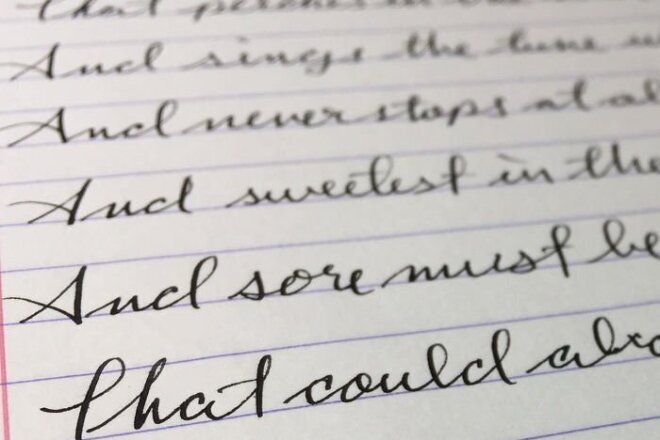 That perches in the
And sings the tune w
And never stops at al
And sweetest in the
And sore must be
That could aba